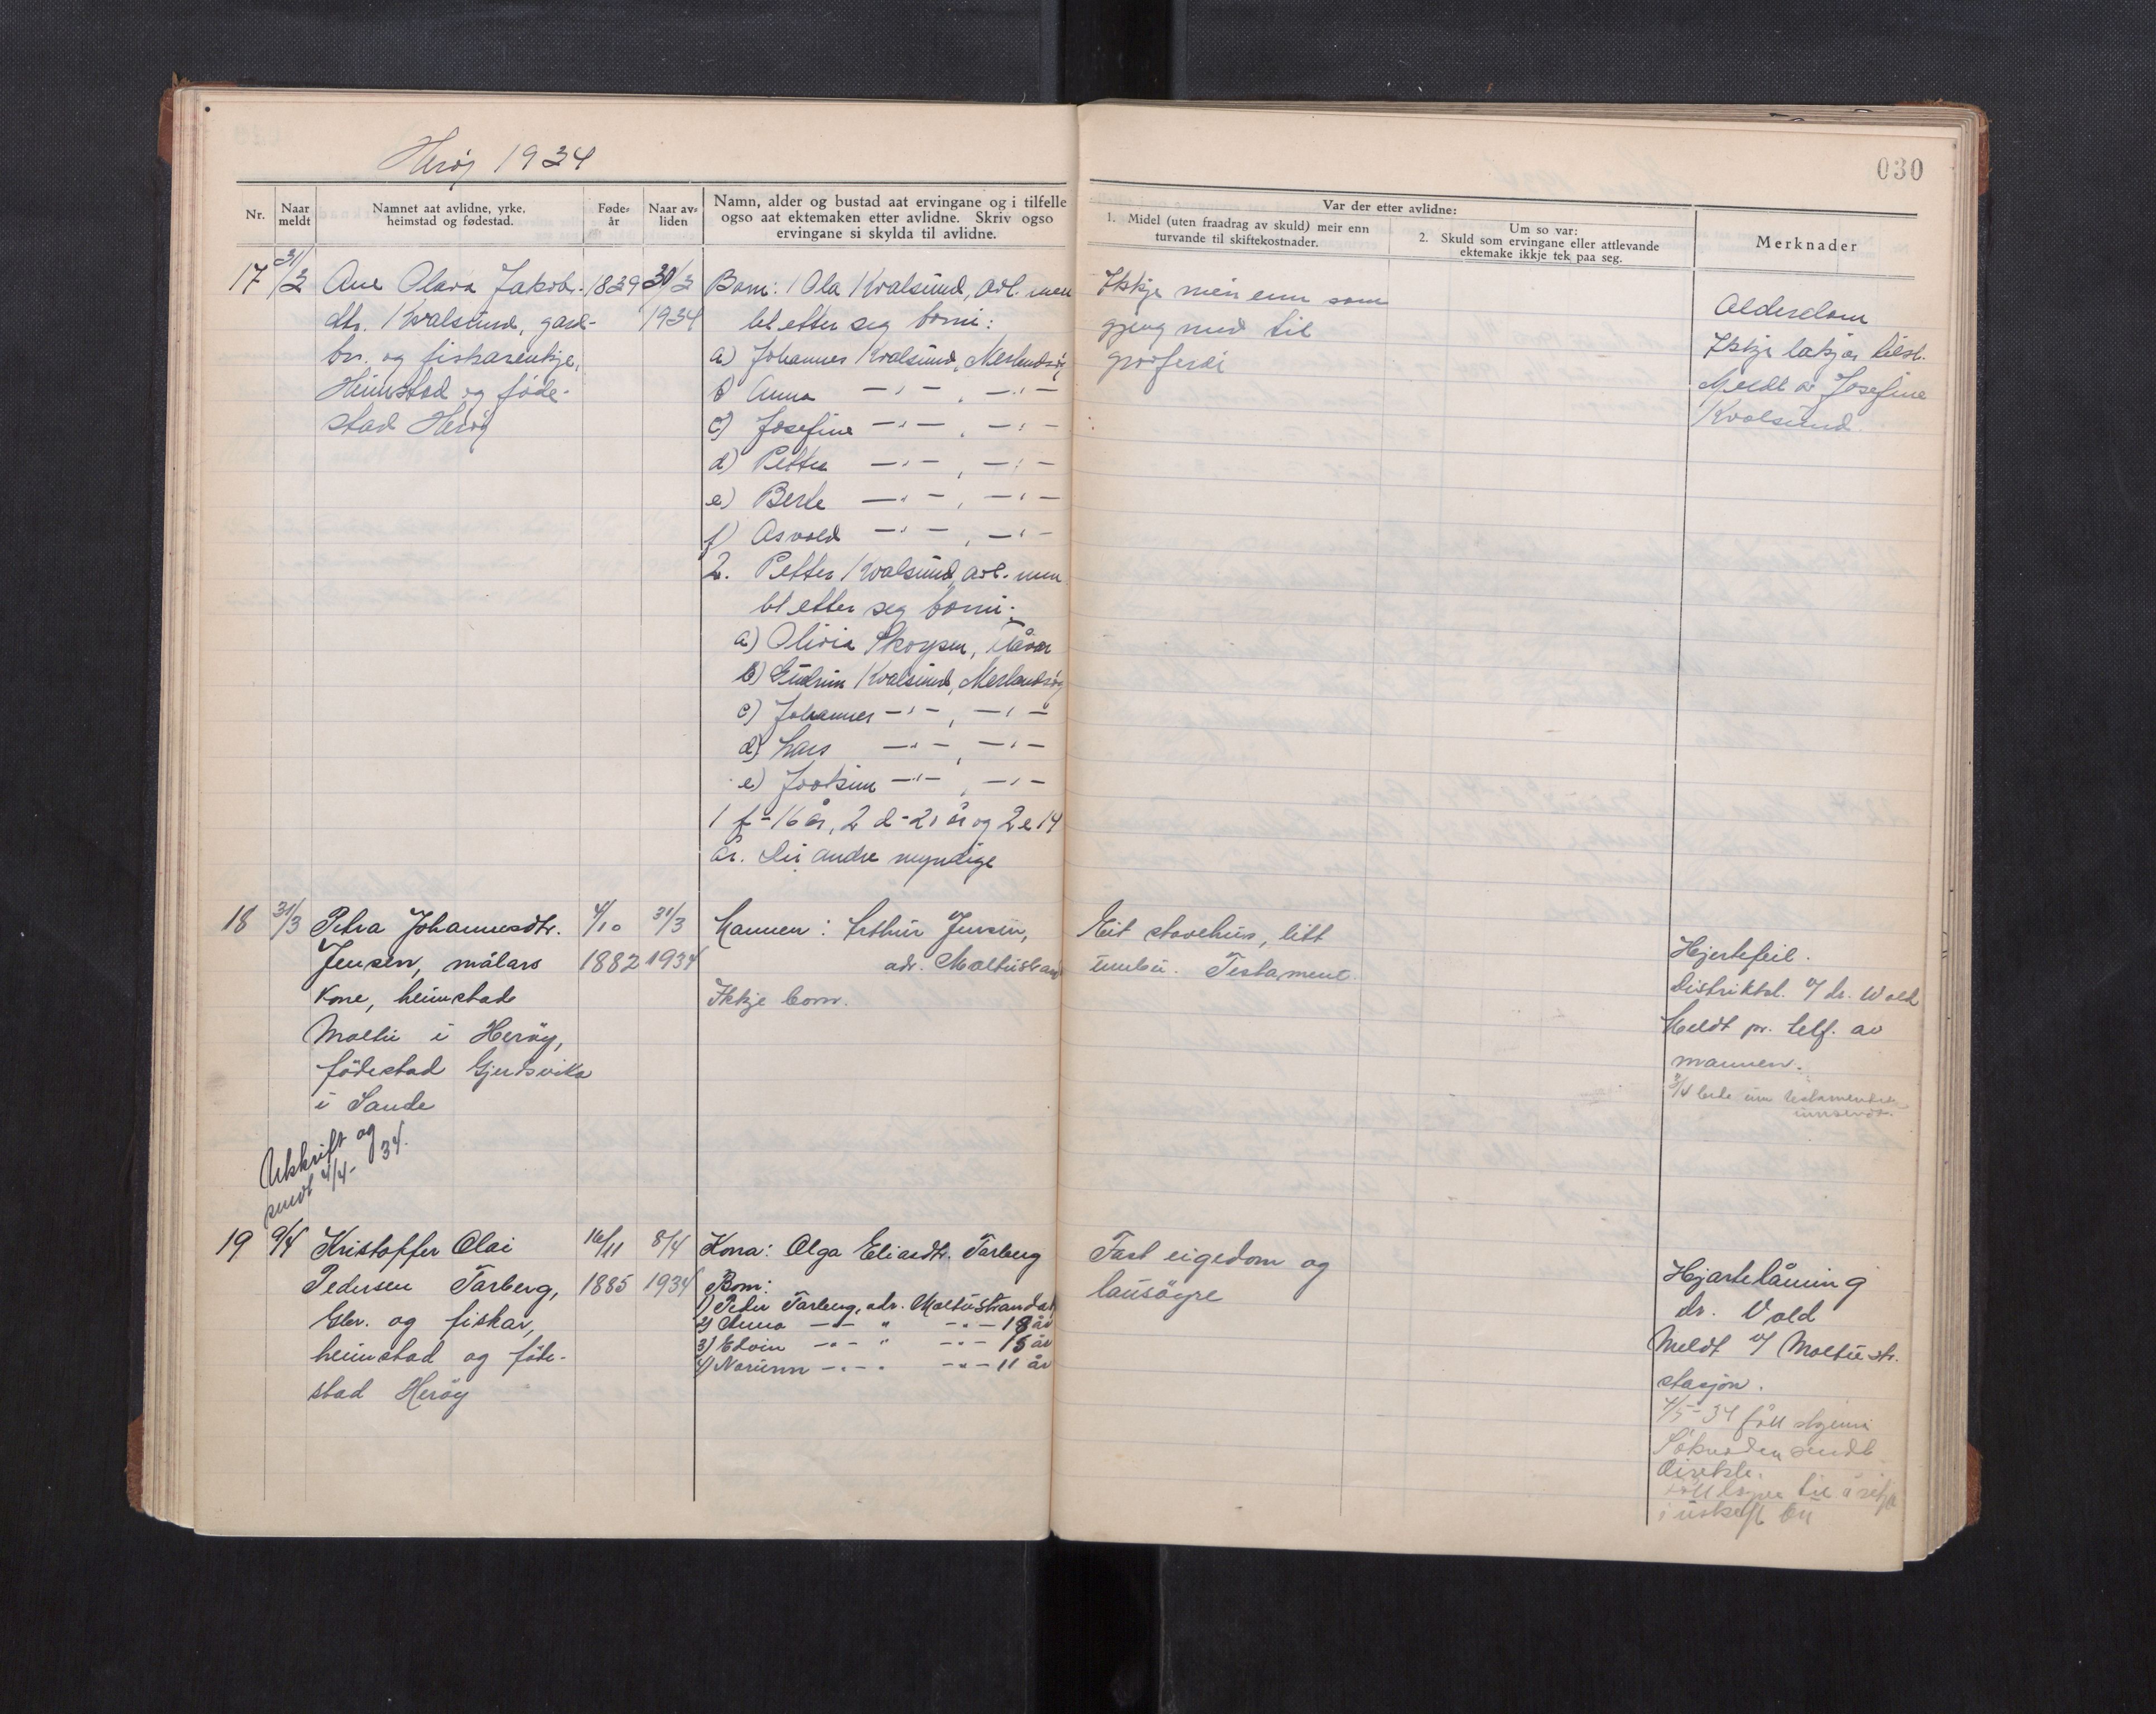 Herøy 1934
030
Nr.
Naar meldt
Namnet aat avlidne, yrke, heimstad og fødestad.
Føde-år
Naar av-liden
Namn, alder og bustad aat ervingane og i tilfelle
ogso aat ektemaken etter avlidne. Skriv ogso
ervingane si skylda til avlidne.
Var der etter avlidne:
1. Midel (uten fraadrag av skuld) meir enn
turvande til skiftekostnader.
Um so var:
2. Skuld som ervingane eller attlevande
ektemake ikkje tek paa seg.
Merknader
17 31/3 Ane Olava Jakobs- 1839 30/3
dtr. Kvalsund, gard- 1934
br. og fiskarenkje,
Heimstad og føde-
stad Herøy
Born: 1 Ola Kvalsund, avl. men
let etter seg borni:
a) Johannes Kvalsund, Merlandsøy
b) Anna —"—, —"—
c) Josefine —"—, —"—
d) Petter —"—, —"—
e) Berte —"—, —"—
f) Asvald —"—, —"—
2. Petter Kvalsund, avl. men
let etter seg borni:
a) Olivia Skorpen, Flåvær
b) Gudrun Kvalsund, Merlandsøy
c) Johannes —"—, —"—
d) Lars —"—, —"—
e) Joakim —"—, —"—
1 f - 16 år, 2 d - 21 år og 2 e 14
år. Dei andre myndige
Ikkje meir enn som
gjeng med til
gravferdi
Alderdom
Ikkje lækjar tilst.
Meldt av Josefine
Kvalsund.
18 31/3 Petra Johannesdtr. 4/10 31/3
Jensen, målars 1882 1934
kone, heimstad
Moltu i Herøy,
födestad Gjerdsvika
i Sande
Mannen: Arthur Jensen,
adr. Moltustrand
Ikkje born.
Eit stovehus, litt
innbu. Testament.
Hjertefeil.
Distriktsl. v/ dr. Wold
Meldt pr. telf. av
mannen.
3/4 bede um testamentet
innsendt.
Utskrift og
sendt 4/4- 34.
19 9/4 Kristoffer Olai 16/11 8/4
Pedersen Tarberg, 1885 1934
Gbr. og fiskar,
heimstad og föde-
stad Heröy
Kona: Olga Eliasdtr. Tarberg
Born:
1) Peder Tarberg, adr. Moltustranda
2) Anna —"— " —"— 18 år
3) Edvin —"— " —"— 15 år
4) Norunn —"— " —"— 11 år
Fast eigedom og
lausöyre
Hjartelåming
dr. Vold
Meldt v/ Moltustr.
stasjon.
4/5 - 34 fått skjema
Søknaden sendt
direkte.
til å sitja
i uskift bu